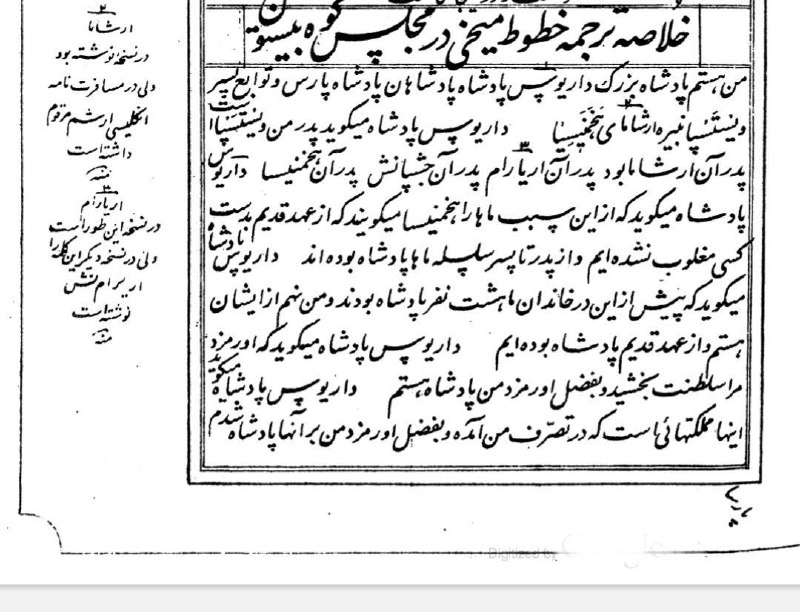 خلاصه ترجمه خطوط میخی در مجالس کوه بیستون
من هستم پادشاه بزرگ داریوس پادشاه پادشاهان پادشاه پارس و توابع پسر
ویستسپا نبیره ارشامای هخمنیسیا داریوس پادشاه میگوید پدر من ویستسپا است
پدر آن ارشاما بود پدر آن آریارام پدر آن جشپانش پدر آن هخمنیسا داریوس
پادشاه میگوید که از این سبب ماها را هخمنیسا میگویند که از عهد قدیم بدست
کسی مغلوب نشده ایم و از پدر تا پسر سلسله ماها پادشاه بوده اند داریوس پادشاه
میگوید که پیش از این در خاندان ما هشت نفر پادشاه بودند و من نهم از ایشان
هستم و از عهد قدیم پادشاه بوده ایم داریوس پادشاه میگوید که اورمزد
مرا سلطنت بخشید و بفضل اورمزد من پادشاه هستم داریوس پادشاه میگوید
اینها مملکتهائی است که در تصرف من آمده و بفضل اورمزد من بر آنها پادشاه شدم
۲
ارشاما
در نسخه نوشته بود
ولی در مسافرت نامه
انگلیسی ارشم مرقوم
داشته است
منه
۳
اریارام
در نسخه این طور است
ولی در نسخه دیگر این کلمه را
اریرام نش
نوشته است
منه
Digitized by Google